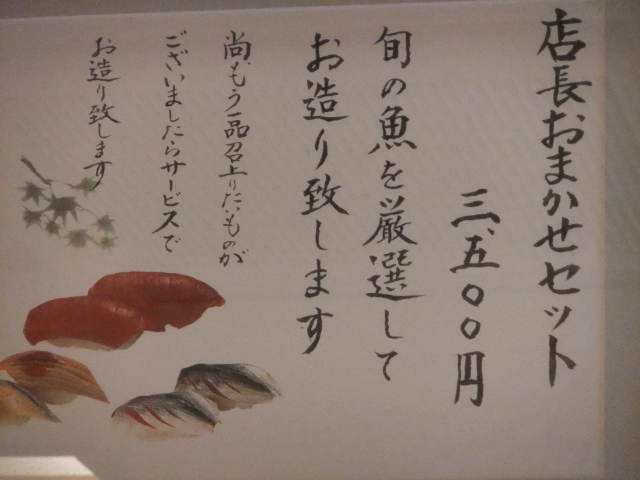 店長おまかせセット
三、五〇〇円
旬の魚を厳選して
お造り致します
尚、もう一品召上りたいものが
ございましたらサービスで
お造り致します